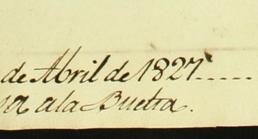 de Abril de 1827.....
a ala Buetra.